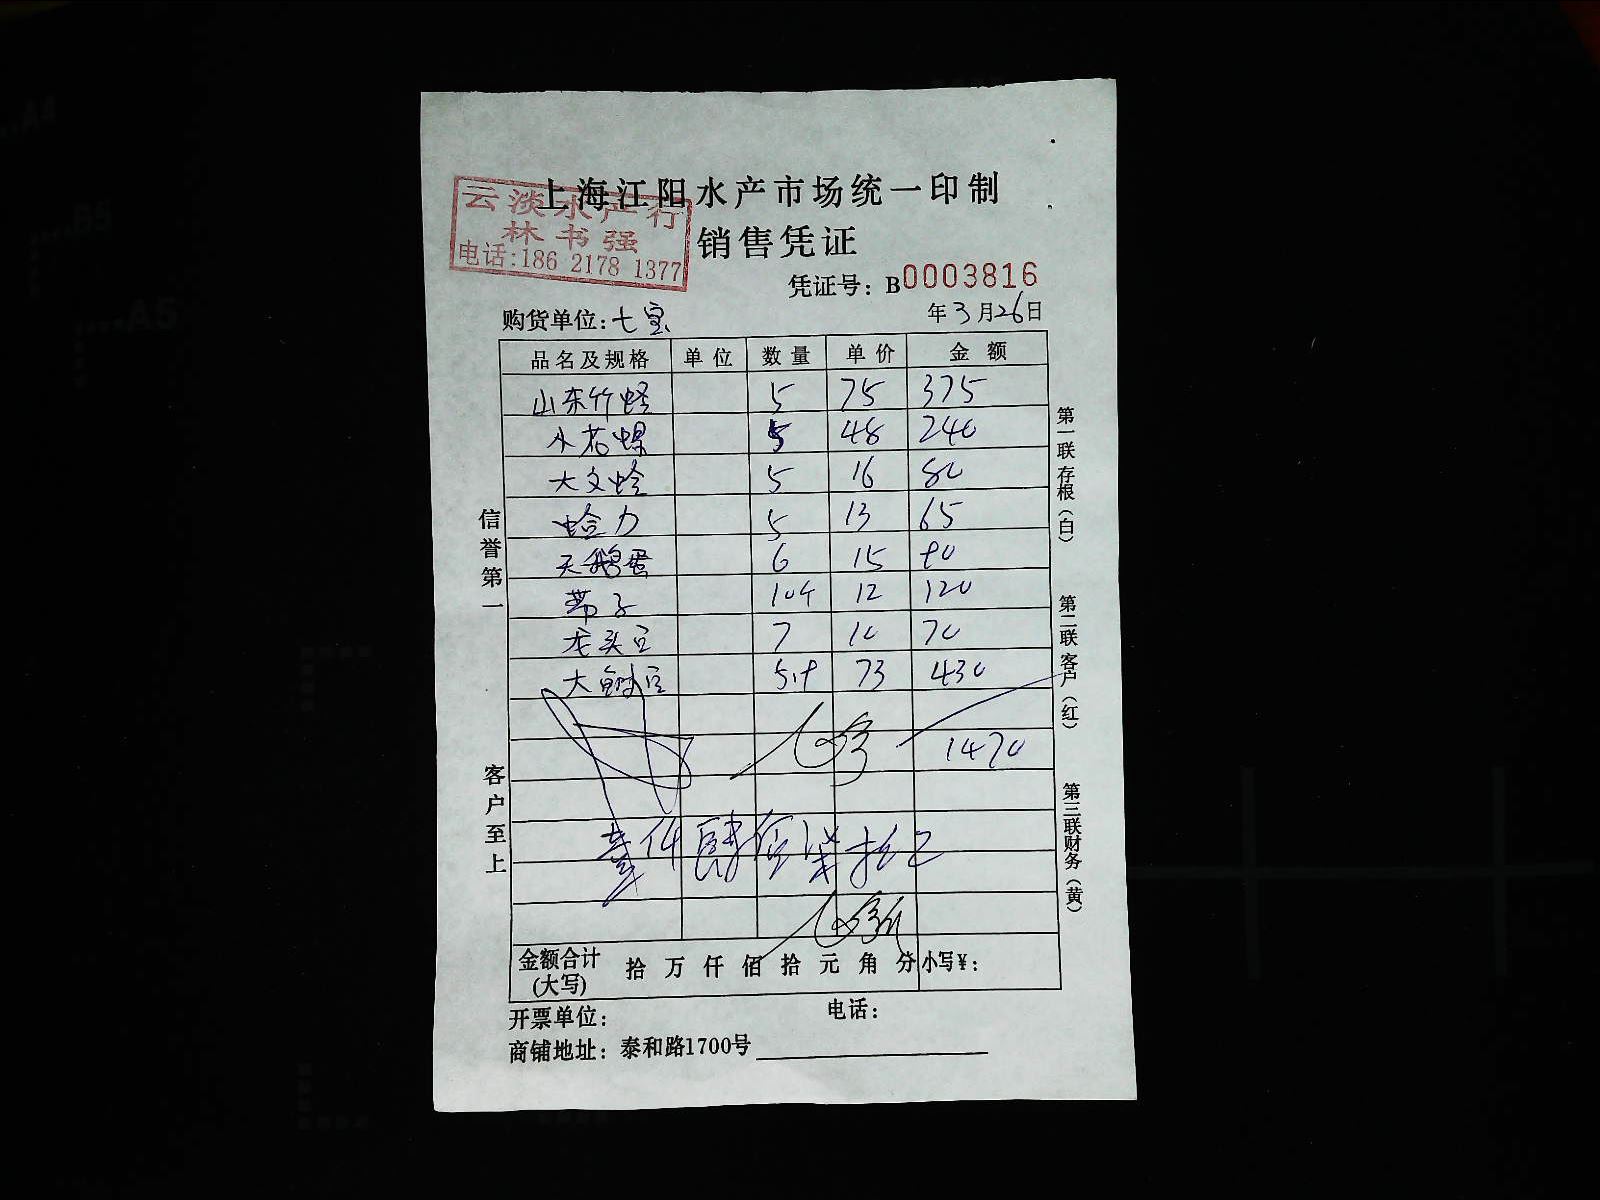 上海江阳水产市场统一印制
云淡水产行
林书强
电话:186 2178 1377
销售凭证
凭证号: B0003816
购货单位: 七宝 年3月26日
品名及规格 单位 数量 单价 金额
山东竹蛏 5 75 375
小花螺 5 48 240
大文蛤 5 16 80
蛤力 5 13 65
天鹅蛋 6 15 90
带子 10个 12 120
龙头豆 7 10 70
大鲥豆 5.9 73 430
1470
壹仟肆佰柒拾元
金额合计(大写) 拾 万 仟 佰 拾 元 角 分 小写¥:
开票单位: 电话:
商铺地址: 泰和路1700号
信誉第一
客户至上
第一联存根(白)
第二联客户(红)
第三联财务(黄)